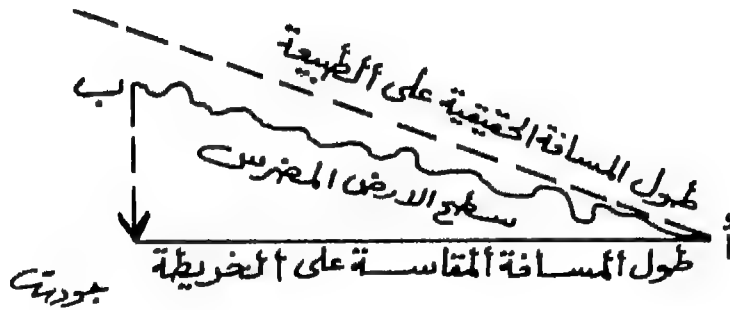 طول المسافة الحقيقية على الطبيعة
ب
سطح الارض المضرس
أ
طول المسافة المقاسة على الخريطة
جودت